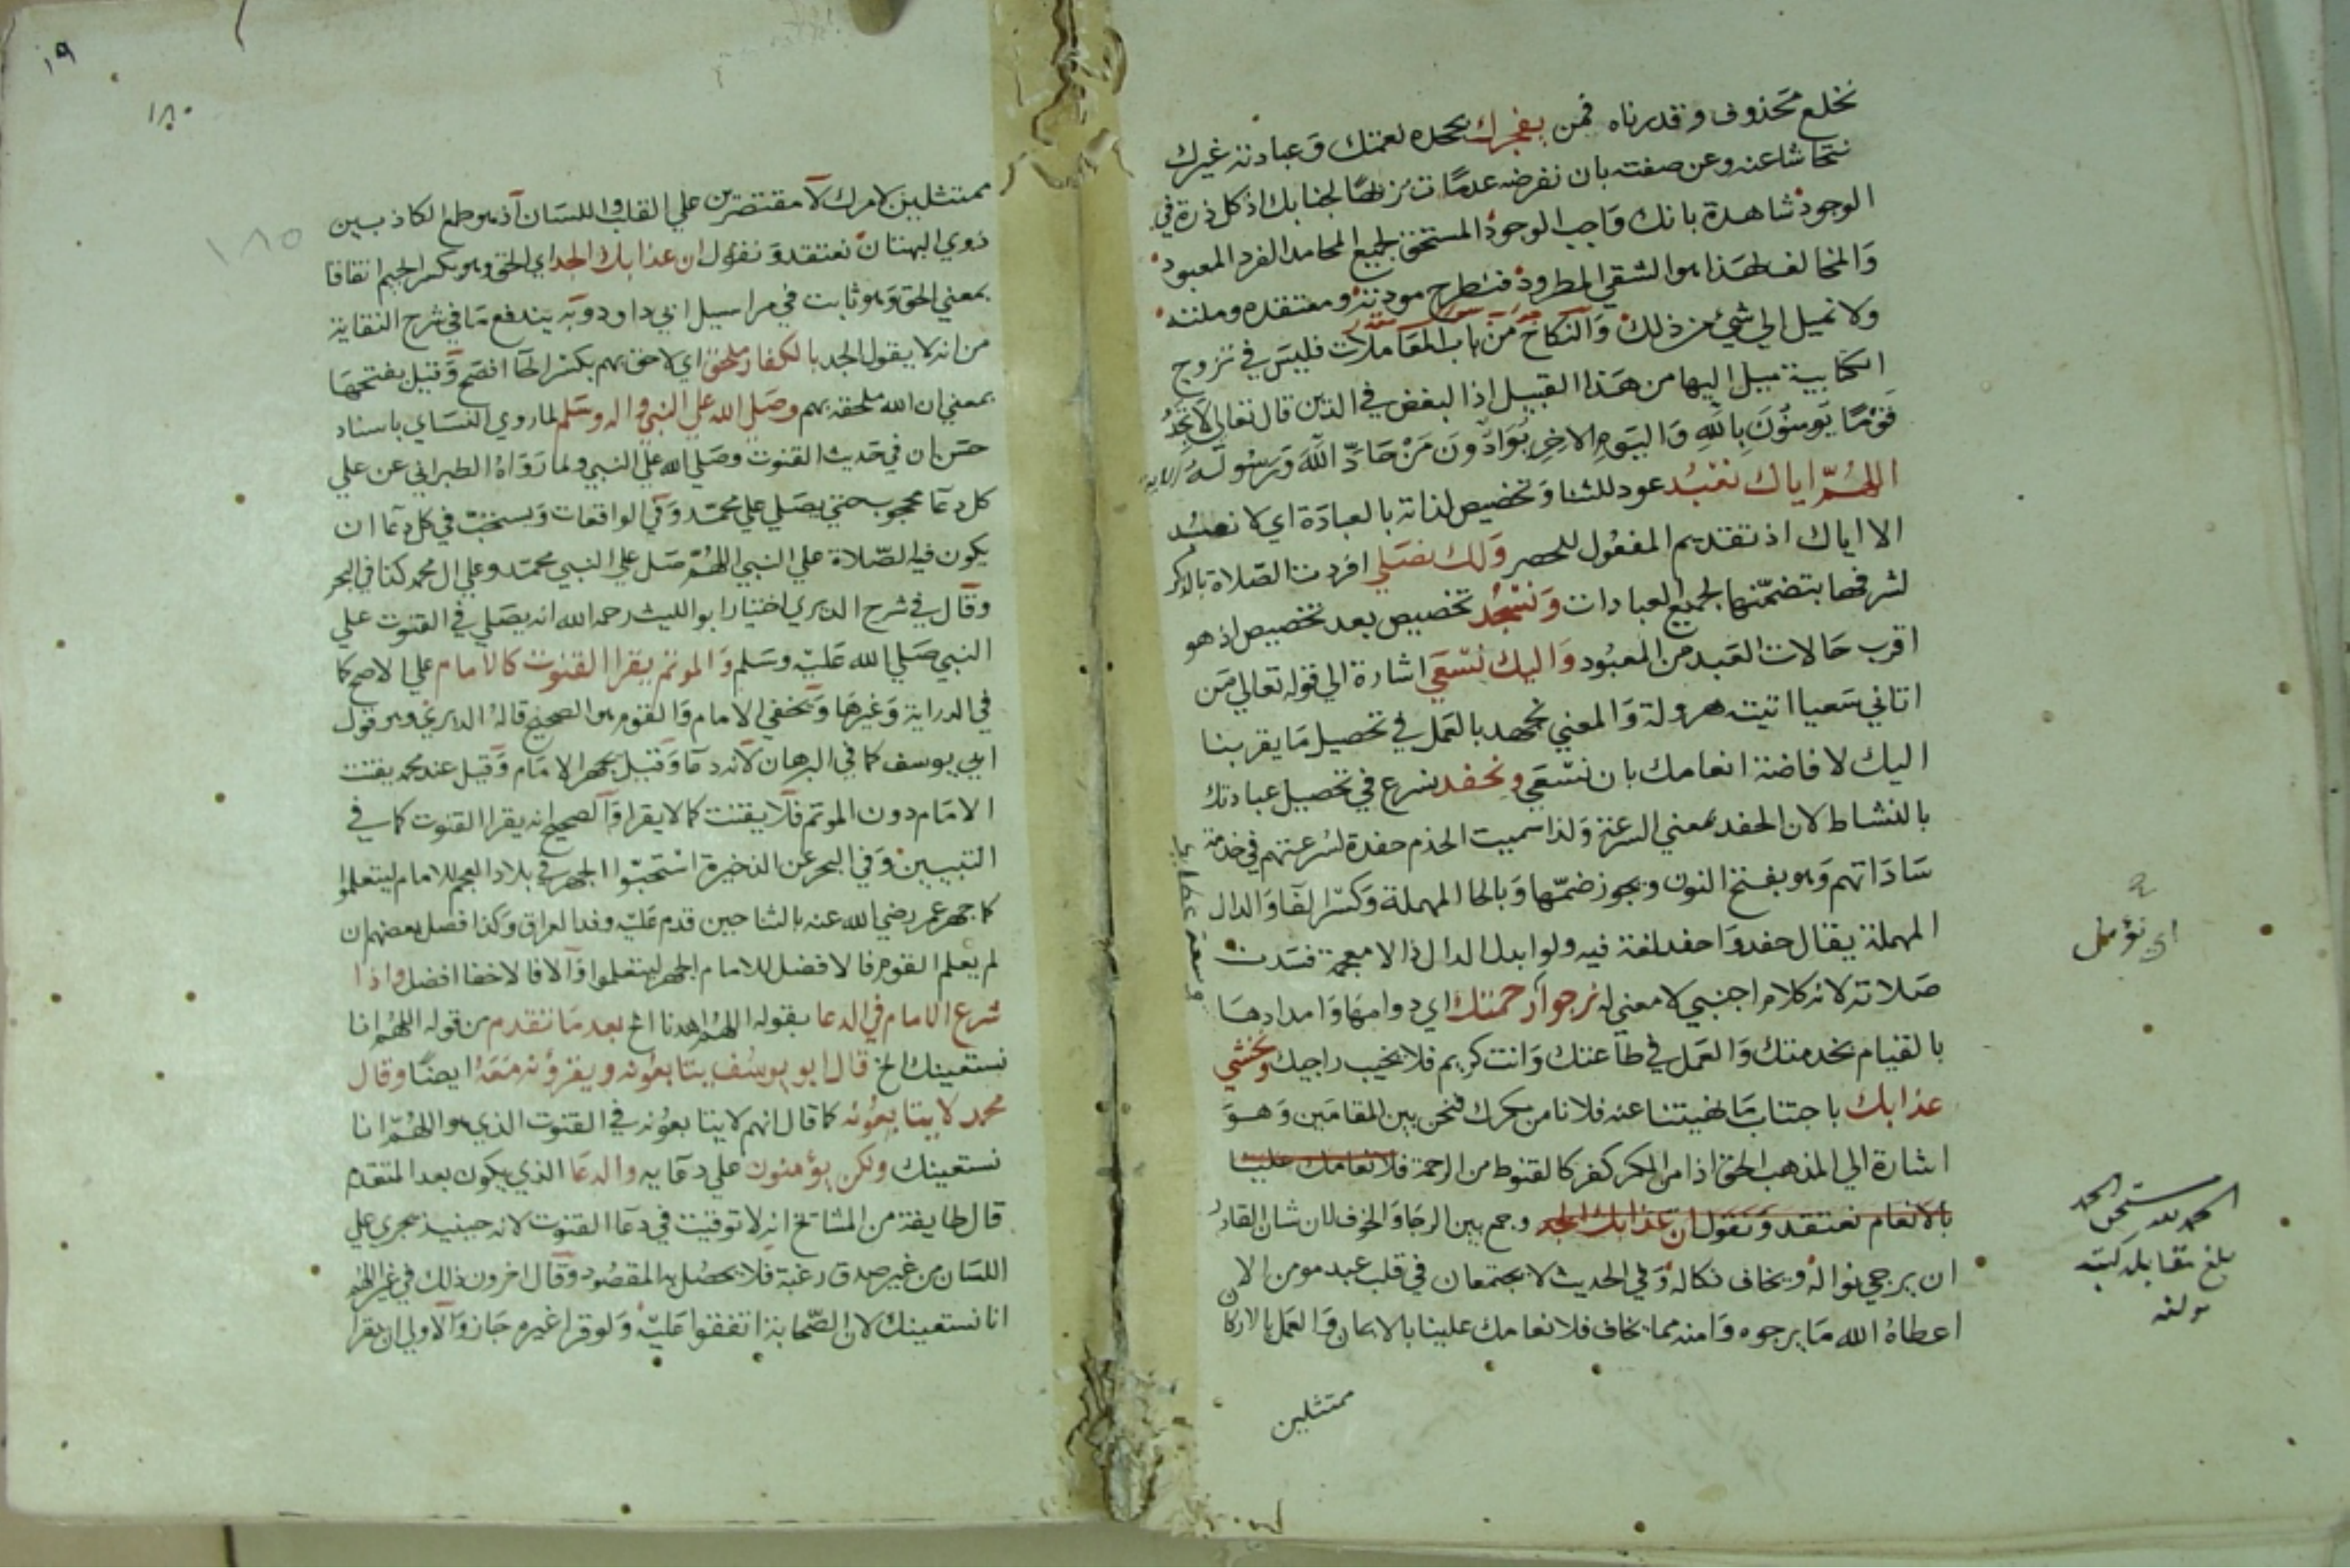 نخلع محذوف وقدرناه فمن يفجرك بجحده نعمتك وعبادته غيرك
نتحاشا عنه وعن صفته بان نفرضه عدما تنزيها لجنابك اذ كل ذرة في
الوجود شاهدة بانك واجب الوجود المستحق لجميع المحامد الفرد المعبود
والمخالف لهذا هو الشقي المطرود فنطرح مودته ومعتقده وملته
ولا نميل الي شيء من ذلك والنكاح من باب المعاملات فليس في تزوج
الكتابية ميل اليها من هذا القبيل اذ البغض في الدين قال تعالي لا تجد
قوما يومنون بالله واليوم الاخر يوادون من حاد الله ورسوله الاية
اللهم اياك نعبد عود للثنا وتخصيص لذاته بالعبادة اي لا نعبد
الا اياك اذ تقديم المفعول للحصر ولك نصلي افردت الصلاة بالذكر
لشرفها بتضمنها لجميع العبادات ونسجد تخصيص بعد تخصيص اذ هو
اقرب حالات العبد من المعبود واليك نسعي اشارة الي قوله تعالي من
اتاني سعيا اتيته هرولة والمعني نجهد بالعمل في تحصيل ما يقربنا
اليك لافاضة انعامك بان نسعي ونحفد نسرع في تحصيل عبادتك
بالنشاط لان الحفد بمعني السرعة ولذا سميت الخدم حفدة لسرعتهم في خدمة
ساداتهم وهو بفتح النون ويجوز ضمها وبالحا المهملة وكسر الفا والدال
المهملة يقال حفد واحفد لغة فيه ولو ابدل الدال ذالا معجمة فسدت
صلاته لانه كلام اجنبي لا معني له نرجوا رحمتك اي دوامها وامدادها
وسعة عطايك
بالقيام بخدمتك والعمل في طاعتك وانت كريم فلا يخيب راجيك ونخشي
عذابك باجتناب ما نهيتنا عنه فلا نامن مكرك فنحن بين المقامين وهو
اشارة الي المذهب الحق اذ امن المكر كفر كالقنوط من الرحمة فلانعامك علينا
بالانعام نعتقد ونقول ان عذابك الجد وجمع بين الرجا والخوف لان شان القادر
ان يرجي نواله ويخاف نكاله وفي الحديث لا يجتمعان في قلب عبد مومن الا
اعطاه الله ما يرجوه وامنه مما يخاف فلانعامك علينا بالايمان والعمل بالاركان
ممتثلين
اي نؤمل
الحمد لله مستحق الحمد
بلغ مقابلة كتبه
مولفه
١٩
١٨٠
١٨٥
ممتثلين لامرك لا مقتصرين علي القلب واللسان اذ هو طمع الكاذبين
ذوي البهتان نعتقد ونقول ان عذابك الجد اي الحق وهو بكسر الجيم اتفاقا
بمعني الحق وهو ثابت في مراسيل ابي داود وبه يندفع ما في شرح النقاية
من انه لا يقول الجد بالكفار ملحق اي لاحق بهم بكسر الحا افصح وقيل بفتحها
بمعني ان الله ملحقه بهم وصلي الله علي النبي واله وسلم لما روي النساي باسناد
حسن ان في حديث القنوت وصلي الله علي النبي ولما رواه الطبراني عن علي
كل دعا محجوب حتي يصلي علي محمد وفي الواقعات ويستحب في كل دعا ان
يكون فيه الصلاة علي النبي اللهم صل علي النبي محمد وعلي ال محمد كذا في البحر
وقال في شرح الديري اختيار ابو الليث رحمه الله انه يصلي في القنوت علي
النبي صلي الله عليه وسلم والموتم يقرا القنوت كالامام علي الاصح كما
في الدراية وغيرها ويخفي الامام والقوم هو الصحيح قاله الديري وهو قول
ابي يوسف كما في البرهان لانه دعا وقيل يجهر الامام وقيل عند محمد يقنت
الامام دون الموتم فلا يقنت كما لا يقرا والصحيح انه يقرا القنوت كما في
التبيين وفي البحر عن الذخيرة استحبوا الجهر في بلاد العجم للامام ليتعلموا
كما جهر عمر رضي الله عنه بالثنا حين قدم عليه وفد العراق وكذا فصل بعضهم ان
لم يعلم القوم فالافضل للامام الجهر ليتعلموا والا فالاخفا افضل واذا
شرع الامام في الدعا بقوله اللهم اهدنا الخ بعد ما تقدم من قوله اللهم انا
نستعينك الخ قال ابو يوسف يتابعونه ويقرؤنه معه ايضا وقال
محمد لا يتابعونه كما قال انهم لا يتابعونه في القنوت الذي هو اللهم انا
نستعينك ولكن يؤمنون علي دعايه والدعا الذي يكون بعد المتقدم
قال طايفة من المشايخ انه لا توقيت في دعا القنوت لانه حينيذ يجري علي
اللسان من غير صدق رغبة فلا يحصل به المقصود وقال اخرون ذلك في غير اللهم
انا نستعينك لان الصحابة اتفقوا عليه ولو قرا غيره جاز والاولي ان يقرا